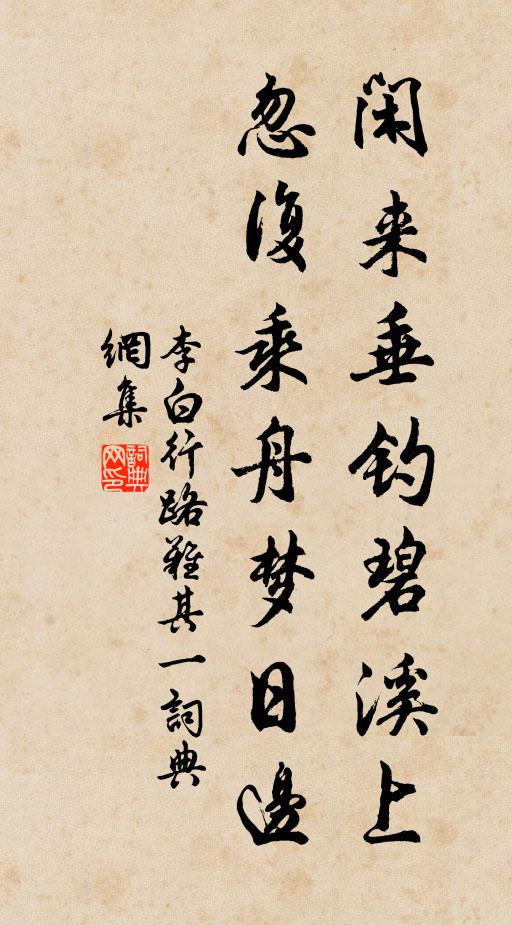 闲来垂钓碧溪上
忽復乘舟梦日邊
李白行路難其一詞典
網集
詞典网印